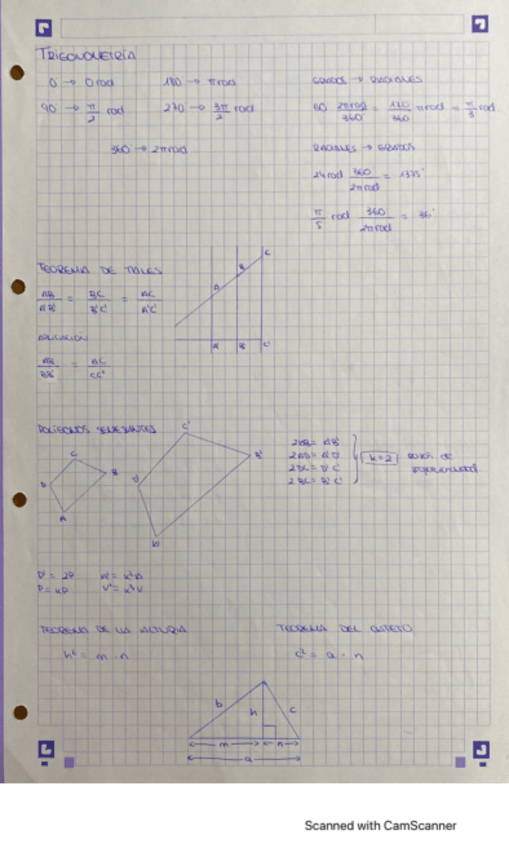 TRIGONOMETRÍA
0 → 0 rad
180 → π rad
90 → π/2 rad
270 → 3π/2 rad
360° → 2π rad
GRADOS → RADIALES
60 2π rad/360° = 120/360 π rad = π/3 rad
RADIALES → GRADOS
24 rad 360/2π rad = 1375°
π/5 rad 360/2π rad = 36°
TEOREMA DE TALES
AB/A'B' = BC/B'C' = AC/A'C'
A B C
A' B' C'
AB/BB' = AC/CC'
POLÍGONOS SEMEJANTES
C B D A
C' B' D' A'
2AB = A'B'
2AD = A'D'
2DC = D'C'
2BC = B'C'
k=2 razón de
P' = 2P
P = kP
A' = k²A
V' = k³V
TEOREMA DE LA ALTURA
h² = m · n
TEOREMA DEL CATETO
c² = a · n
b h c
m n
a
Scanned with CamScanner